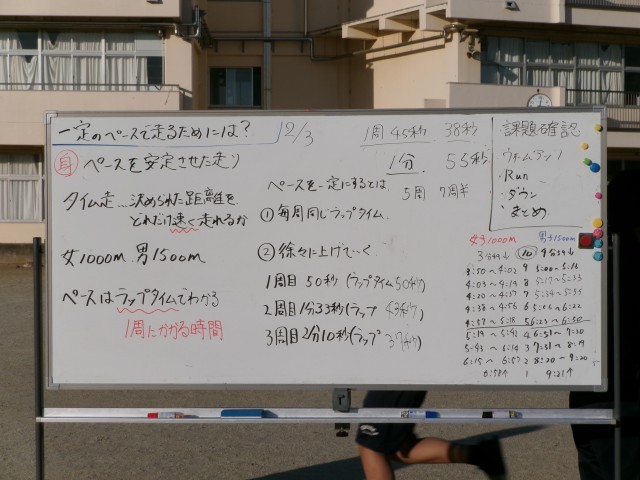 一定のペースで走るためには? 12/3
身 ペースを安定させた走り
タイム走…決められた距離を
どれだけ速く走れるか
女1000m 男1500m
ペースはラップタイムでわかる
1周にかかる時間
1周 45秒 38秒
1分 55秒
ペースを一定にするとは 5周 7周半
① 毎周同じラップタイム
② 徐々に上げていく
1周目 50秒 (ラップタイム50秒)
2周目 1分33秒 (ラップ 43秒)
3周目 2分10秒 (ラップ 37秒)
課題確認
・ウォームアップ
・Run
・ダウン
・まとめ
女子1000m 男子1500m
3分49↓ ⑩ 4分59↓
3:50〜4:02 9 5:00〜5:16
4:03〜4:19 8 5:17〜5:33
4:20〜4:37 7 5:34〜5:54
4:38〜4:56 6
4:57〜5:18 5 6:23〜6:50
7:51〜8:19
6:15〜6:57 2 8:20〜9:20
6:58↑ 1 9:21↑